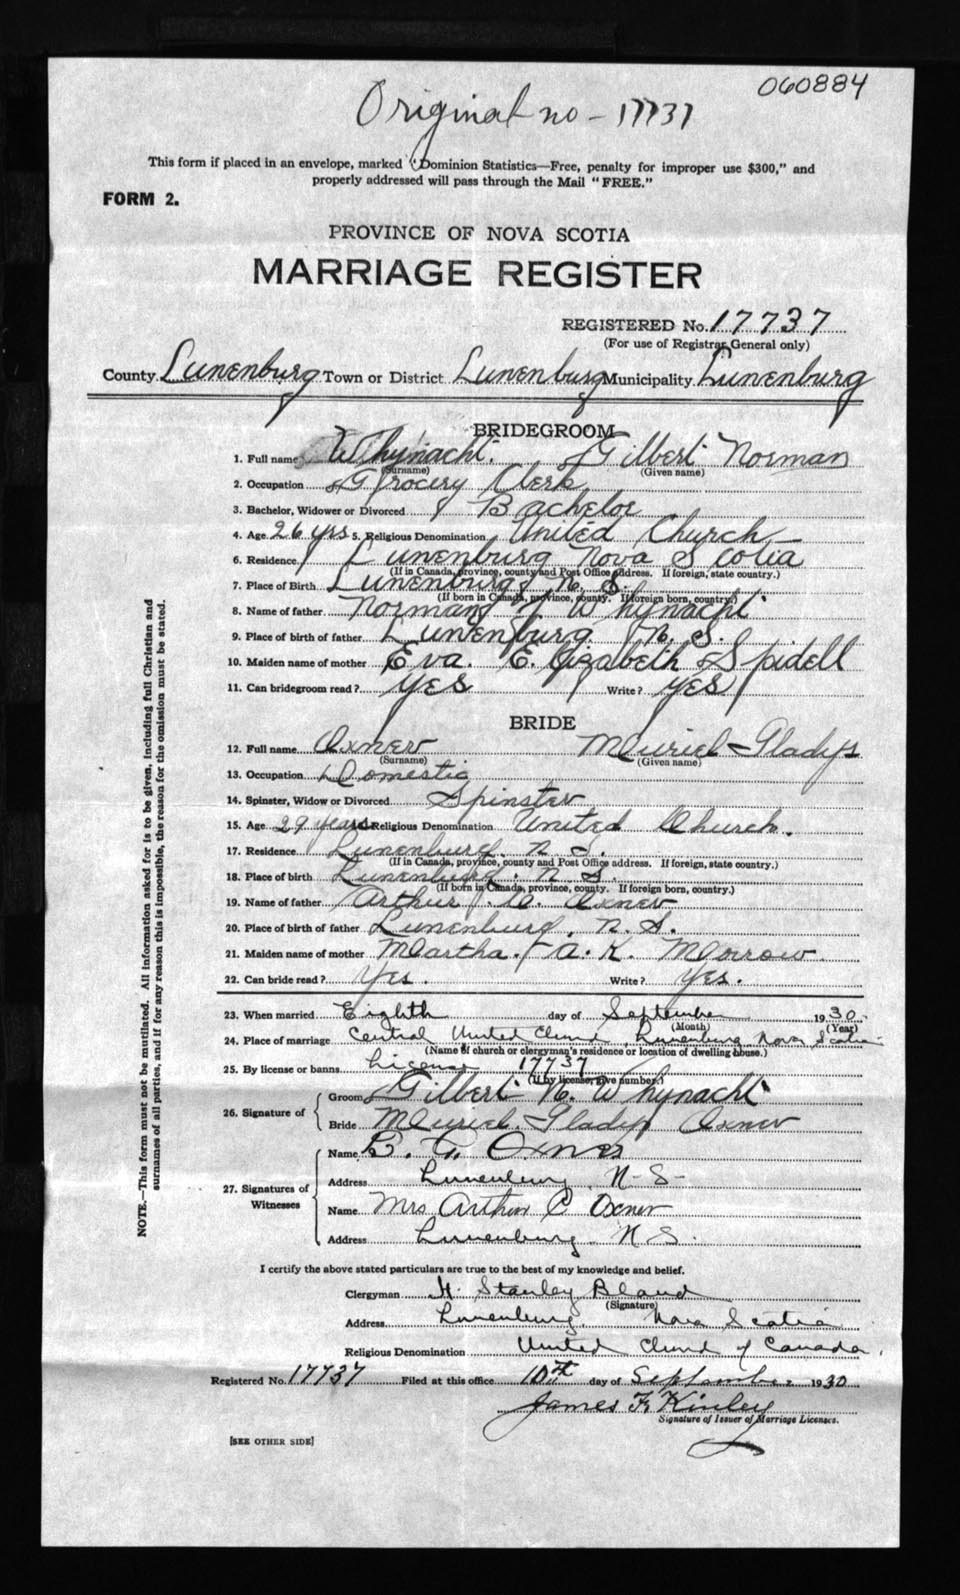 060884
Original no - 17737
This form if placed in an envelope, marked "Dominion Statistics—Free, penalty for improper use $300," and
properly addressed will pass through the Mail "FREE."
FORM 2.
PROVINCE OF NOVA SCOTIA
MARRIAGE REGISTER
REGISTERED No. 17737
(For use of Registrar General only)
County Lunenburg Town or District Lunenburg Municipality Lunenburg
BRIDEGROOM
1. Full name Whynacht. Gilbert Norman
(Surname) (Given name)
2. Occupation Grocery Clerk
3. Bachelor, Widower or Divorced Bachelor
4. Age 26 yrs 5. Religious Denomination United Church
6. Residence Lunenburg Nova Scotia
(If in Canada, province, county and Post Office address. If foreign, state country.)
7. Place of Birth Lunenburg N. S.
(If born in Canada, province, county. If foreign born, country.)
8. Name of father Norman J. Whynacht
9. Place of birth of father Lunenburg. N. S.
10. Maiden name of mother Eva. Elizabeth Spidell
11. Can bridegroom read? yes Write? yes
BRIDE
12. Full name Oxner Muriel Gladys
(Surname) (Given name)
13. Occupation Domestic
14. Spinster, Widow or Divorced Spinster
15. Age 29 years Religious Denomination United Church.
17. Residence Lunenburg. N. S.
(If in Canada, province, county and Post Office address. If foreign, state country.)
18. Place of birth Lunenburg. N. S.
(If born in Canada, province, county. If foreign born, country.)
19. Name of father Arthur C. Oxner
20. Place of birth of father Lunenburg, N. S.
21. Maiden name of mother Martha. A. K. Morrow.
22. Can bride read? Yes. Write? Yes.
23. When married Eighth day of September 1930.
(Month) (Year)
24. Place of marriage Central United Church, Lunenburg, Nova Scotia
(Name of church or clergyman's residence or location of dwelling house.)
25. By license or banns License 17737
(If by license, give number.)
26. Signature of
Groom Gilbert N. Whynacht
Bride Muriel. Gladys Oxner
27. Signatures of Witnesses
Name B. G. Oxner
Address Lunenburg, N-S-
Name Mrs Arthur C Oxner
Address Lunenburg. N S.
I certify the above stated particulars are true to the best of my knowledge and belief.
Clergyman H. Stanley Bland
(Signature)
Address Lunenburg. Nova Scotia
Religious Denomination United Church of Canada.
Registered No. 17737 Filed at this office 10th day of September 1930
James F. Kinley
Signature of Issuer of Marriage Licenses.
[SEE OTHER SIDE]
NOTE.—This form must not be mutilated. All information asked for is to be given, including full Christian and
surnames of all parties, and if for any reason this is impossible, the reason for the omission must be stated.